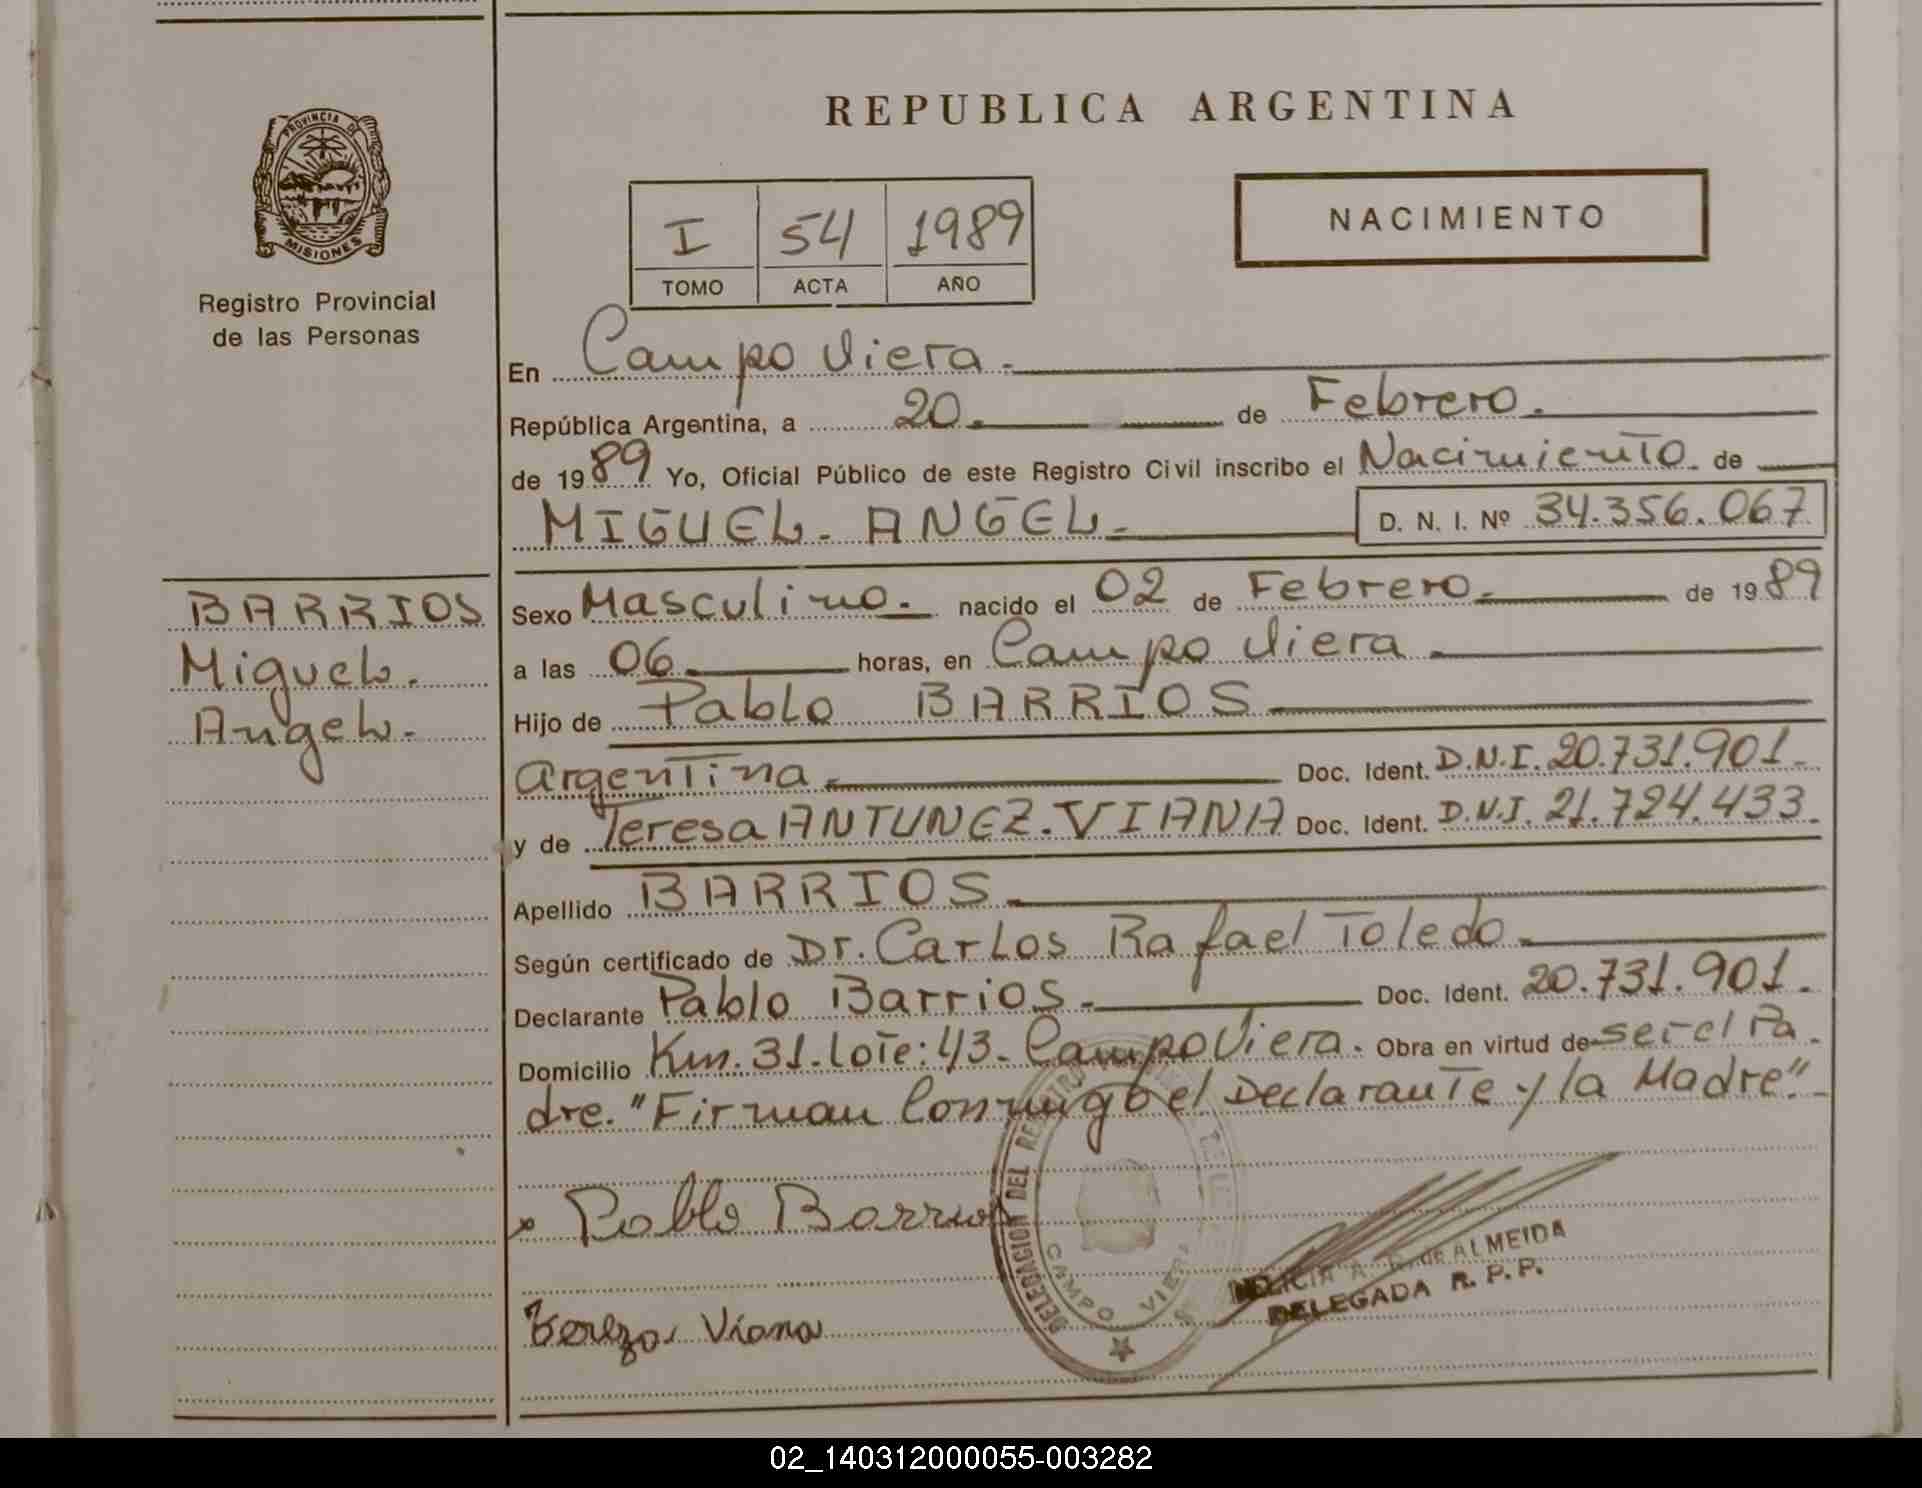 REPUBLICA ARGENTINA
PROVINCIA DE
MISIONES
Registro Provincial
de las Personas
I 54 1989
TOMO ACTA AÑO
NACIMIENTO
En Campo Viera.
República Argentina, a 20. de Febrero.
de 1989 Yo, Oficial Público de este Registro Civil inscribo el Nacimiento de
MIGUEL. ANGEL. D. N. I. Nº 34.356.067
BARRIOS
Miguel.
Angel.
Sexo Masculino. nacido el 02 de Febrero. de 1989
a las 06. horas, en Campo Viera.
Hijo de Pablo BARRIOS
argentina. Doc. Ident. D.N.I. 20.731.901.
y de Teresa ANTUNEZ. VIANA Doc. Ident. D.N.I. 21.724.433.
Apellido BARRIOS.
Según certificado de Dr. Carlos Rafael Toledo.
Declarante Pablo Barrios. Doc. Ident. 20.731.901.
Domicilio Km. 31. Lote: 43. Campo Viera. Obra en virtud de ser el Pa
dre. "Firman Conmigo el Declarante y la Madre".
Pablo Barrios
DELEGACION DEL
CAMPO VIERA
A. de ALMEIDA
DELEGADA R. P. P.
Tereza Viana
02_140312000055-003282